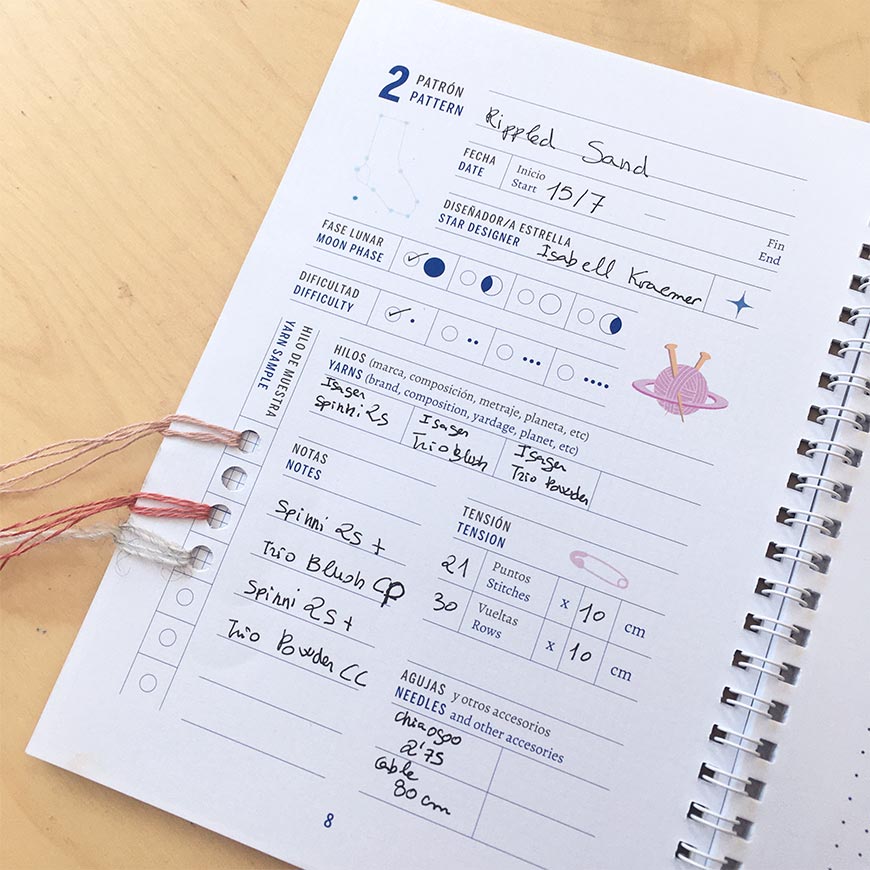 2 PATRÓN
PATTERN
Rippled Sand
FECHA
DATE
Inicio
Start 15/7 —
Fin
End
DISEÑADOR/A ESTRELLA
STAR DESIGNER Isabell Kraemer
FASE LUNAR
MOON PHASE
DIFICULTAD
DIFFICULTY
HILO DE MUESTRA
YARN SAMPLE
HILOS (marca, composición, metraje, planeta, etc)
YARNS (brand, composition, yardage, planet, etc)
Isager
Spinni 2s
Isager
Trio blush
Isager
Trio Powder
NOTAS
NOTES
Spinni 2s +
Trio Blush
Spinni 2s +
Trio Powder CC
TENSIÓN
TENSION
21 Puntos
Stitches x 10 cm
30 Vueltas
Rows x 10 cm
AGUJAS y otros accesorios
NEEDLES and other accesories
chiaogoo
2'75
Cable
80 cm
8